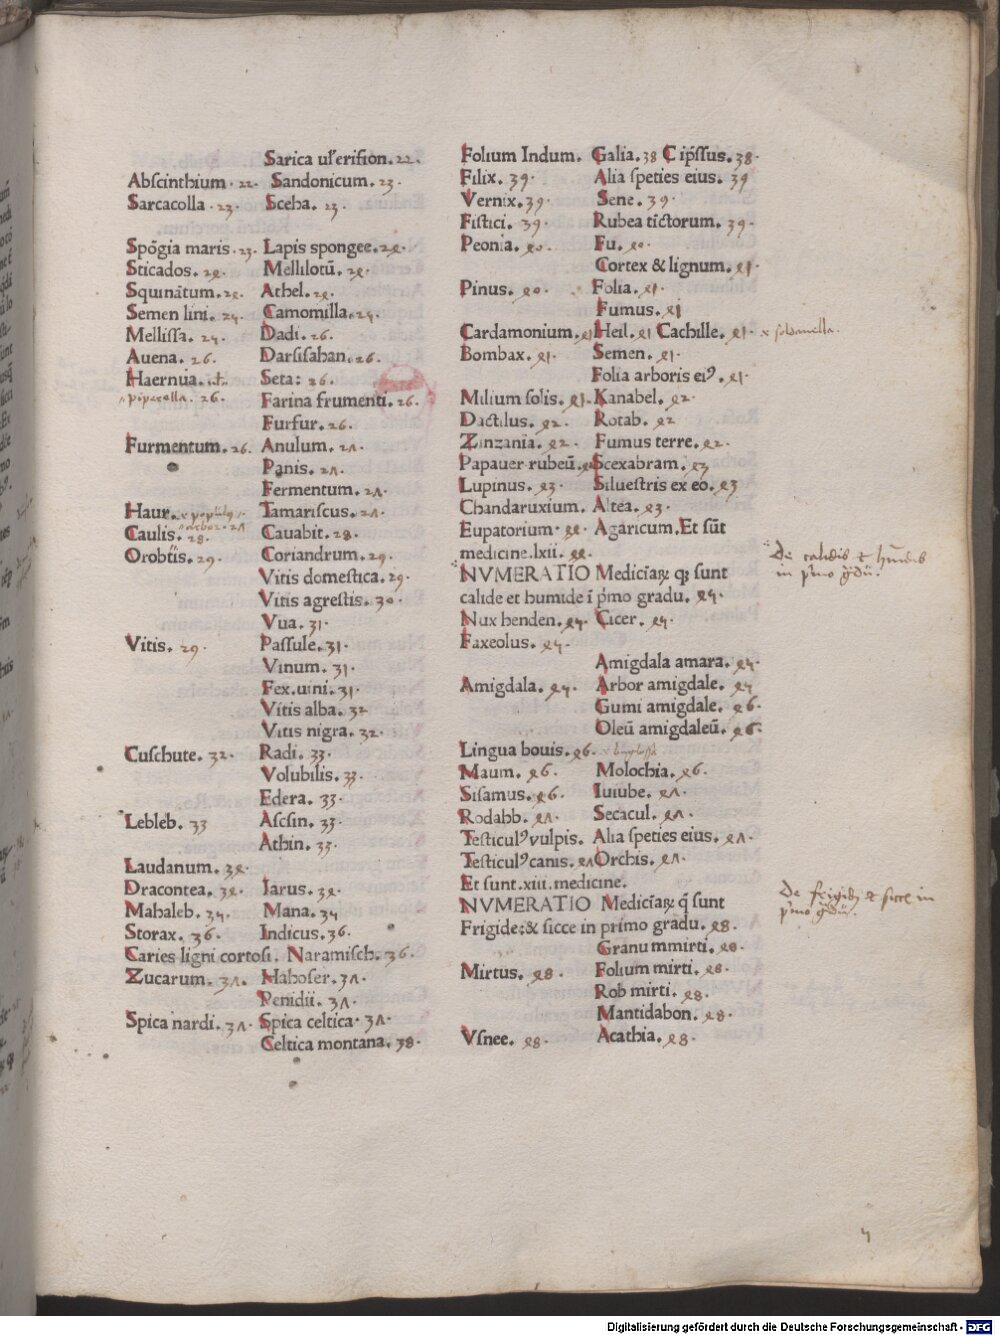 Sarica ul'erifion. 22.
Abscinthium. 22. Sandonicum. 23.
Sarcacolla. 23. Sceha. 23.
Spōgia maris. 23. Lapis spongee. 24.
Sticados. 24. Mellilotū. 24.
Squinātum. 24. Athel. 24.
Semen lini. 25. Camomilla. 25.
Mellissa. 25. Dadi. 26.
Auena. 26. Darsisahan. 26.
Haernua. .i. Seta: 26.
pipacella. 26. Farina frumenti. 26.
Furfur. 26.
Furmentum. 26. Anulum. 27.
Panis. 27.
Fermentum. 27.
Haur. Tamariscus. 27.
arbor. 27
Caulis. 28. Cauabit. 28.
Orobtīs. 29. Coriandrum. 29.
Vitis domestica. 29.
Vitis agrestis. 30.
Vua. 31.
Vitis. 29. Passule. 31.
Vinum. 31.
Fex uini. 31.
Vitis alba. 32
Vitis nigra. 32.
Cuschute. 32. Radi. 33.
Volubilis. 33.
Edera. 33.
Lebleb. 33 Ascsin. 33.
Athin. 33.
Laudanum. 34.
Dracontea. 34. Iarus. 34.
Mahaleb. 35. Mana. 35
Storax. 36. Indicus. 36.
Caries ligni cortosi. Naramisch. 36.
Zucarum. 37. Haboser. 37.
Penidii. 37.
Spica nardi. 37. Spica celtica. 37.
Celtica montana. 38.
Folium Indum. Galia. 38 Cip̄ssus. 38.
Filix. 39. Alia speties eius. 39
Vernix. 39. Sene. 39.
Fistici. 39. Rubea tīctorum. 39.
Peonia. 40. Fu. 40.
Cortex & lignum. 41.
Pinus. 40. Folia. 41.
Fumus. 41
Cardamonium. 41 Heil. 41 Cachille. 41. x soldanella.
Bombax. 41. Semen. 41.
Folia arboris eiꝰ. 41.
Milium solis. 41. Kanabel. 42.
Dactilus. 42. Rotab. 42
Zinzania. 42. Fumus terre. 42.
Papauer rubeū. Scexabram. 43
Lupinus. 43. Siluestris ex eo. 43
Chandaruxium. Altea. 43.
Eupatorium. 44. Agaricum. Et sūt
medicine. lxii. 44.
NVMERATIO Mediciaꝝ qꝫ sunt
calide et humide ī p̄mo gradu. 45.
De calidis et humidis
in p̄mo gdū.
Nux henden. 45. Cicer. 45.
Faxeolus. 45.
Amigdala amara. 45.
Amigdala. 45. Arbor amigdale. 45
Gumi amigdale. 46.
Oleū amigdaleū. 46.
Lingua bouis. 46. x buglossa
Maum. 46. Molochia. 46.
Sisamus. 46. Iuiube. 47.
Rodabb. 47. Secacul. 47.
Testiculꝰ vulpis. Alia speties eius. 47
Testiculꝰ canis. 47 Orchis. 47.
Et sunt. xiii. medicine.
NVMERATIO Mediciaꝝ q̄ sunt
Frigide: & sicce in primo gradu. 48.
De frigidis et sicce in
p̄mo gdū.
Granum mirti. 48.
Mirtus. 48. Folium mirti. 48.
Rob mirti. 48.
Mantidabon. 48.
Vsnee. 48. Acathia. 48.
Digitalisierung gefördert durch die Deutsche Forschungsgemeinschaft - DFG